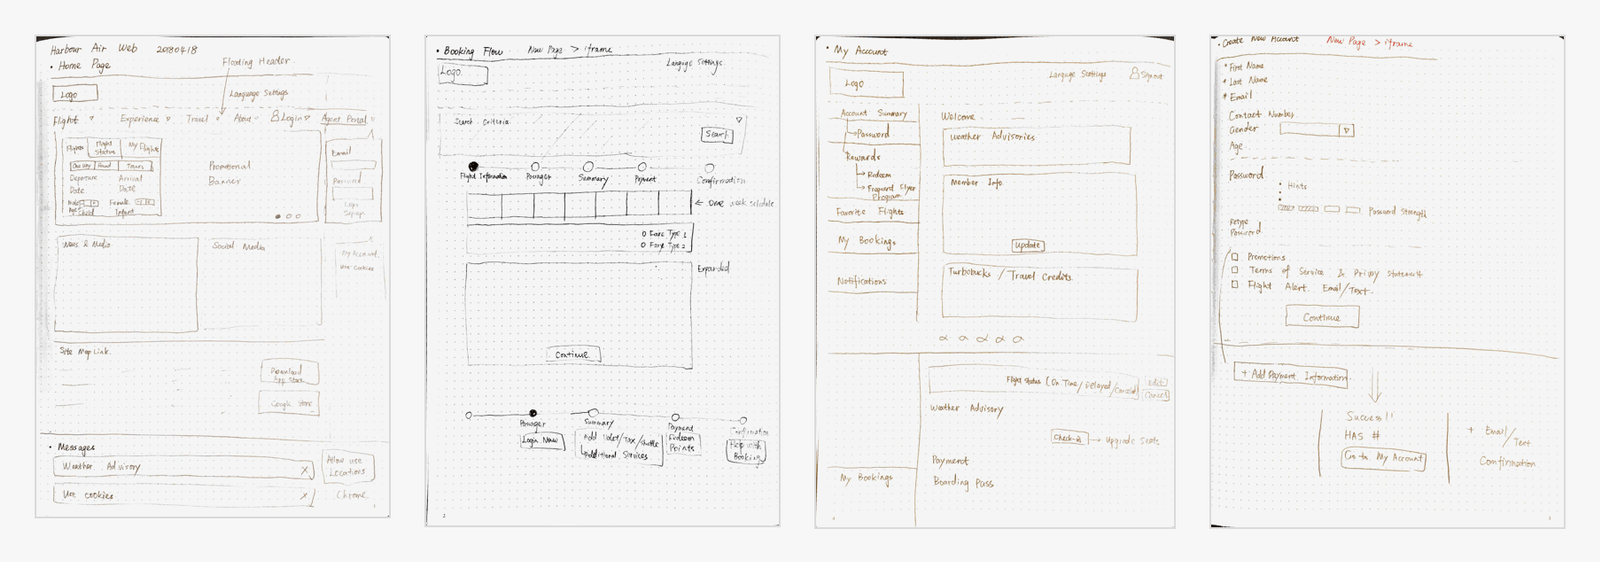 Harbour Air Web 20180418
• Home Page
Floating Header
Logo
Language Settings
Flight Experience Travel About Login Agent Portal
Flights Flight Status My Flights
One way Round Tours
Departure Arrival
Date Date
Promotional
Banner
Email
Password
Login
Sign up
News & Media
Social Media
My Account
Use Cookies
Site Map Link
Download
App Store
Google Store
• Messages
Weather Advisory X
Use cookies X
Allow use
Locations
Chrome
• Booking Flow New Page > iframe
Logo
Language Settings
Search Criteria
Search
Flight Information Passenger Summary Payment Confirmation
← One week schedule
O Fare Type 1
O Fare Type 2
Expanded
Continue
Passenger Summary Payment Confirmation
Login Now
Add Valet/Taxi/Shuttle
Additional Services
Redeem
Points
Help with
Booking
• My Account
Logo
Language Settings
Account Summary
Password
Rewards
Redeem
Frequent Flyer
Program
Favorite Flights
My Bookings
Notifications
Welcome
Weather Advisories
Member Info
Update
Turbobucks / Travel Credits
Flight Status (On Time/Delayed/Cancel)
Edit
Cancel
Weather Advisory
Check-in → Upgrade Seats
Payment
Boarding Pass
My Bookings
• Create New Account New Page > iframe
* First Name
* Last Name
* Email
Contact Number
Gender
Age
Password
• Hints
Password Strength
Retype
Password
Promotions
Terms of Service & Privacy Statement
Flight Alert. Email/Text.
Continue
+ Add Payment Information
Success!!
HAS #
Go to My Account
+ Email/
Text
Confirmation